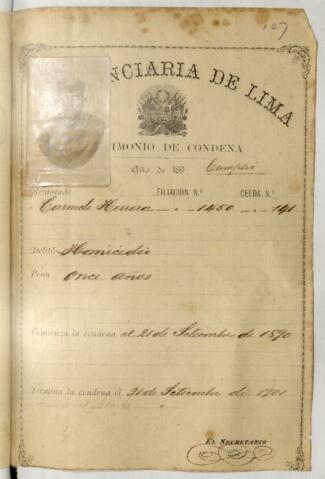 107
NCIARIA DE LIMA
IMONIO DE CONDENA
Año de 189 Cumplió
Rematado FILIACION N.º CELDA N.º
Carmelo Herrera 1450 141
Delito Homicidio
Pena Once años
Comienza la condena el 21 de Setiembre de 1890
Termina la condena el 21 de Setiembre de 1901
EL SECRETARIO